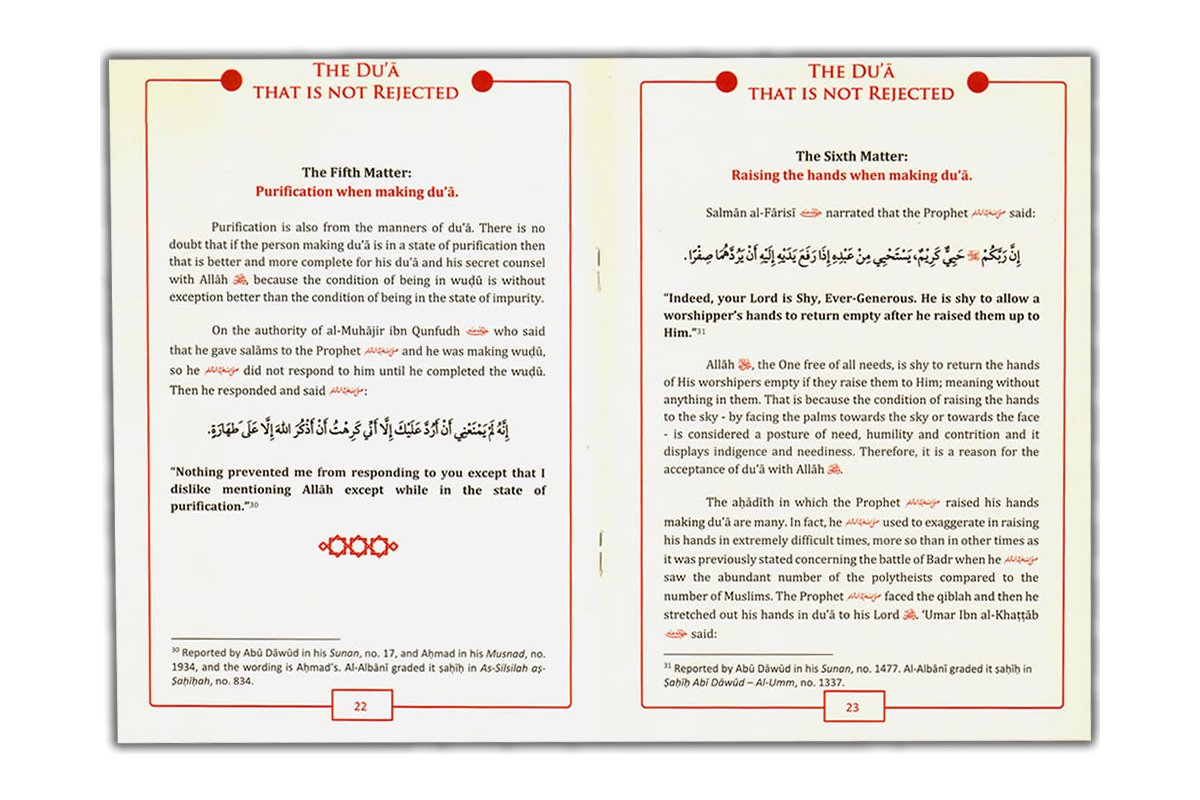 THE DU'Ā
THAT IS NOT REJECTED
The Fifth Matter:
Purification when making du'ā.
Purification is also from the manners of du'ā. There is no
doubt that if the person making du'ā is in a state of purification then
that is better and more complete for his du'ā and his secret counsel
with Allāh ﷻ, because the condition of being in wuḍū is without
exception better than the condition of being in the state of impurity.
On the authority of al-Muhājir ibn Qunfudh who said
that he gave salāms to the Prophet ﷺ and he was making wuḍū,
so he ﷺ did not respond to him until he completed the wuḍū.
Then he responded and said ﷺ:
إِنَّهُ لَمْ يَمْنَعْنِي أَنْ أَرُدَّ عَلَيْكَ إِلَّا أَنِّي كَرِهْتُ أَنْ أَذْكُرَ اللهَ إِلَّا عَلَى طَهَارَةٍ.
"Nothing prevented me from responding to you except that I
dislike mentioning Allāh except while in the state of
purification."30
30 Reported by Abū Dāwūd in his Sunan, no. 17, and Aḥmad in his Musnad, no.
1934, and the wording is Aḥmad's. Al-Albānī graded it ṣaḥīḥ in As-Silsilah aṣ-
Ṣaḥīḥah, no. 834.
22
THE DU'Ā
THAT IS NOT REJECTED
The Sixth Matter:
Raising the hands when making du'ā.
Salmān al-Fārisī narrated that the Prophet ﷺ said:
إِنَّ رَبَّكُمْ ﷻ حَيِيٌّ كَرِيْمٌ، يَسْتَحْيِي مِنْ عَبْدِهِ إِذَا رَفَعَ يَدَيْهِ إِلَيْهِ أَنْ يَرُدَّهُمَا صِفْرًا.
"Indeed, your Lord is Shy, Ever-Generous. He is shy to allow a
worshipper's hands to return empty after he raised them up to
Him."31
Allāh ﷻ, the One free of all needs, is shy to return the hands
of His worshipers empty if they raise them to Him; meaning without
anything in them. That is because the condition of raising the hands
to the sky - by facing the palms towards the sky or towards the face
- is considered a posture of need, humility and contrition and it
displays indigence and neediness. Therefore, it is a reason for the
acceptance of du'ā with Allāh ﷻ.
The aḥādīth in which the Prophet ﷺ raised his hands
making du'ā are many. In fact, he ﷺ used to exaggerate in raising
his hands in extremely difficult times, more so than in other times as
it was previously stated concerning the battle of Badr when he ﷺ
saw the abundant number of the polytheists compared to the
number of Muslims. The Prophet ﷺ faced the qiblah and then he
stretched out his hands in du'ā to his Lord ﷻ. 'Umar Ibn al-Khaṭṭāb
said:
31 Reported by Abū Dāwūd in his Sunan, no. 1477. Al-Albānī graded it ṣaḥīḥ in
Ṣaḥīḥ Abī Dāwūd – Al-Umm, no. 1337.
23